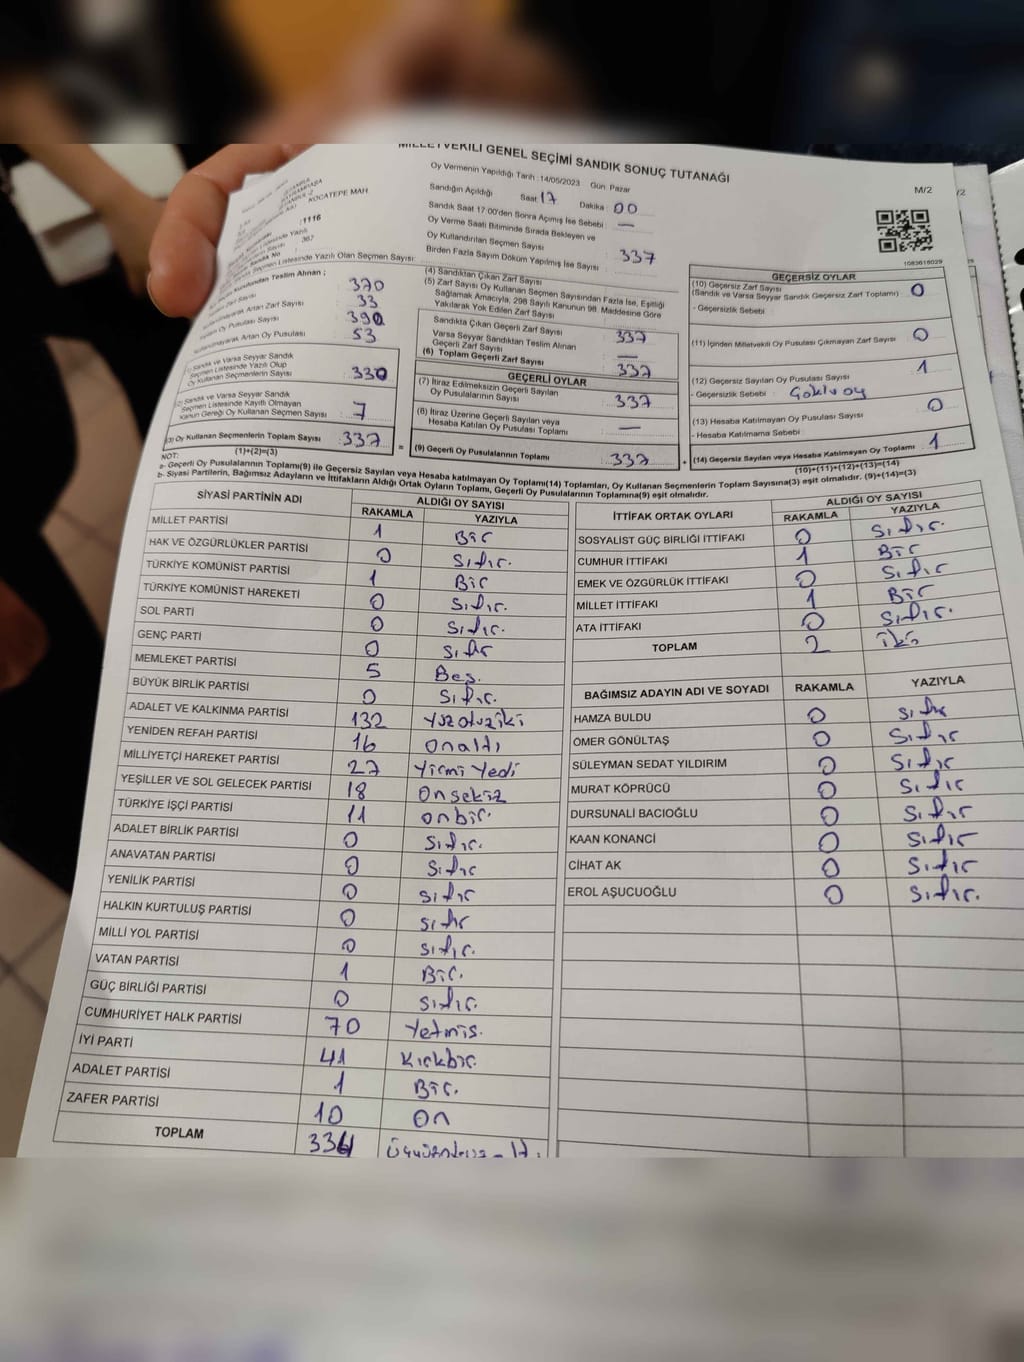 MİLLETVEKİLİ GENEL SEÇİMİ SANDIK SONUÇ TUTANAĞI
Oy Vermenin Yapıldığı Tarih :14/05/2023 Gün: Pazar
M/2
/2
Sandığın Açıldığı Saat 17 Dakika : 00
Sandık Saat 17:00'den Sonra Açımış İse Sebebi : —
Oy Verme Saati Bitiminde Sırada Bekleyen ve
Oy Kullandırılan Seçmen Sayısı
Birden Fazla Sayım Döküm Yapılmış İse Sayısı : 337
KOCATEPE MAH
:1116
367
Seçmen Listesinde Yazılı Olan Seçmen Sayısı:
Kurulundan Teslim Alınan ;
Zarf Sayısı : 370
Kullanılmayarak Artan Zarf Sayısı : 33
Toplam Oy Pusulası Sayısı : 390
Kullanılmayarak Artan Oy Pusulası : 53
(1) Sandık ve Varsa Seyyar Sandık
Seçmen Listesinde Yazılı Olup
Oy Kullanan Seçmenlerin Sayısı : 330
(2) Sandık ve Varsa Seyyar Sandık
Seçmen Listesinde Kayıtlı Olmayan
Kanun Gereği Oy Kullanan Seçmen Sayısı : 7
(3) Oy Kullanan Seçmenlerin Toplam Sayısı : 337
(1)+(2)=(3)
(4) Sandıktan Çıkan Zarf Sayısı
(5) Zarf Sayısı Oy Kullanan Seçmen Sayısından Fazla İse, Eşitliği
Sağlamak Amacıyla, 298 Sayılı Kanunun 98. Maddesine Göre
Yakılarak Yok Edilen Zarf Sayısı
Sandıkta Çıkan Geçerli Zarf Sayısı : 337
Varsa Seyyar Sandıktan Teslim Alınan
Geçerli Zarf Sayısı : —
(6) Toplam Geçerli Zarf Sayısı : 337
GEÇERLİ OYLAR
(7) İtiraz Edilmeksizin Geçerli Sayılan
Oy Pusulalarının Sayısı : 337
(8) İtiraz Üzerine Geçerli Sayılan veya
Hesaba Katılan Oy Pusulası Toplamı : —
= (9) Geçerli Oy Pusulalarının Toplamı : 337 +
1083618029
GEÇERSİZ OYLAR
(10) Geçersiz Zarf Sayısı
(Sandık ve Varsa Seyyar Sandık Geçersiz Zarf Toplamı) : 0
- Geçersizlik Sebebi :
(11) İçinden Milletvekili Oy Pusulası Çıkmayan Zarf Sayısı : 0
(12) Geçersiz Sayılan Oy Pusulası Sayısı : 1
- Geçersizlik Sebebi :
(13) Hesaba Katılmayan Oy Pusulası Sayısı : 0
- Hesaba Katılmama Sebebi :
(14) Geçersiz Sayılan veya Hesaba Katılmayan Oy Toplamı : 1
(10)+(11)+(12)+(13)=(14)
NOT:
a- Geçerli Oy Pusulalarının Toplamı(9) ile Geçersiz Sayılan veya Hesaba katılmayan Oy Toplamı(14) Toplamları, Oy Kullanan Seçmenlerin Toplam Sayısına(3) eşit olmalıdır. (9)+(14)=(3)
b- Siyasi Partilerin, Bağımsız Adayların ve İttifakların Aldığı Ortak Oyların Toplamı, Geçerli Oy Pusulalarının Toplamına(9) eşit olmalıdır.
SİYASİ PARTİNİN ADI ALDIĞI OY SAYISI
RAKAMLA YAZIYLA
MİLLET PARTİSİ 1 Bir
HAK VE ÖZGÜRLÜKLER PARTİSİ 0 Sıfır.
TÜRKİYE KOMÜNİST PARTİSİ 1 Bir
TÜRKİYE KOMÜNİST HAREKETİ 0 Sıfır.
SOL PARTİ 0 Sıfır.
GENÇ PARTİ 0 Sıfır
MEMLEKET PARTİSİ 5 Beş.
BÜYÜK BİRLİK PARTİSİ 0 Sıfır.
ADALET VE KALKINMA PARTİSİ 132 Yüzotuziki
YENİDEN REFAH PARTİSİ 16 onaltı
MİLLİYETÇİ HAREKET PARTİSİ 27 Yirmi Yedi
YEŞİLLER VE SOL GELECEK PARTİSİ 18 Onsekiz
TÜRKİYE İŞÇİ PARTİSİ 11 onbir.
ADALET BİRLİK PARTİSİ 0 Sıfır.
ANAVATAN PARTİSİ 0 Sıfır
YENİLİK PARTİSİ 0 sıfır
HALKIN KURTULUŞ PARTİSİ 0 sıfır
MİLLİ YOL PARTİSİ 0 sıfır.
VATAN PARTİSİ 1 Bir.
GÜÇ BİRLİĞİ PARTİSİ 0 sıfır.
CUMHURİYET HALK PARTİSİ 70 Yetmiş.
İYİ PARTİ 41 Kırkbir.
ADALET PARTİSİ 1 Bir.
ZAFER PARTİSİ 10 On
TOPLAM 334
İTTİFAK ORTAK OYLARI ALDIĞI OY SAYISI
RAKAMLA YAZIYLA
SOSYALİST GÜÇ BİRLİĞİ İTTİFAKI 0 Sıfır.
CUMHUR İTTİFAKI 1 Bir
EMEK VE ÖZGÜRLÜK İTTİFAKI 0 Sıfır
MİLLET İTTİFAKI 1 Bir
ATA İTTİFAKI 0 Sıfır.
TOPLAM 2 iki
BAĞIMSIZ ADAYIN ADI VE SOYADI RAKAMLA YAZIYLA
HAMZA BULDU 0 sıfır
ÖMER GÖNÜLTAŞ 0 Sıfır
SÜLEYMAN SEDAT YILDIRIM 0 Sıfır
MURAT KÖPRÜCÜ 0 Sıfır
DURSUNALİ BACIOĞLU 0 Sıfır
KAAN KONANCİ 0 Sıfır
CİHAT AK 0 Sıfır
EROL AŞUCUOĞLU 0 Sıfır.